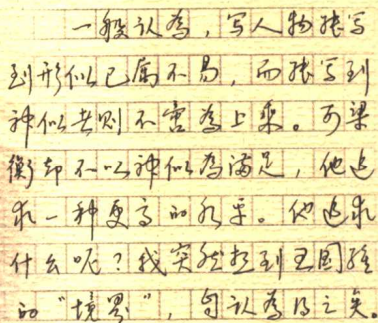 一般认為，写人物能写
到形似已屬不易，而能写到
神似者则不啻為上乘。可梁
衡却不以神似為满足，他追
求一种更高的水平。他追求
什么呢？我突然想到王国维
的“境界”，自认為得之矣。